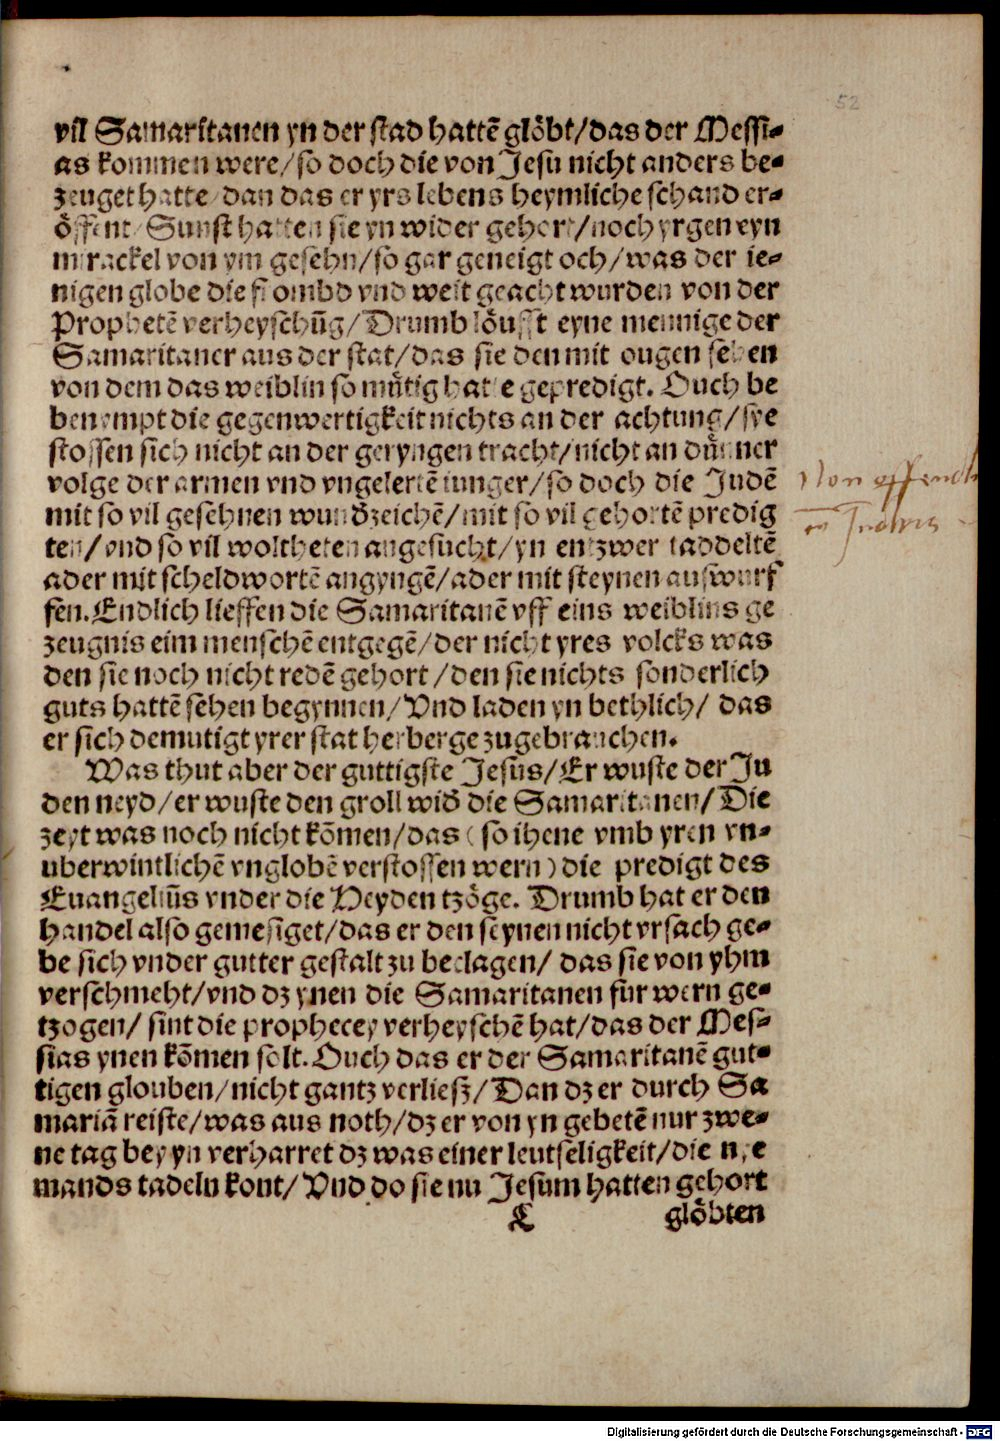 52
vil Samaritanen yn der stad hattē glöbt/das der Messi-
as kommen were/so doch die von Jesu nicht anders be-
zeuget hatte/dan das er yrs lebens heymliche schand er-
öffent/Sunst hatten sie yn wider gehort/noch yrgen eyn
mirackel von ym gesehn/so gar geneigt och/was der ie-
nigen globe die frombd vnd weit geacht wurden von der
Prophetē verheyschūg/Drumb löufft eyne mennige der
Samaritaner aus der stat/das sie den mit ougen sehen
von dem das weiblin so mütig hatte gepredigt. Ouch be
benympt die gegenwertigkeit nichts an der achtung/sye
stossen sich nicht an der geryngen tracht/nicht an dünner
volge der armen vnd vngelertē iunger/so doch die Judē
mit so vil gesehnen wundzeichē/mit so vil gehortē predig
ten/vnd so vil woltheten angesucht/yn entzwer taddeltē
ader mit scheldwortē angyngē/ader mit steynen auswurf
fen. Endlich lieffen die Samaritanē vff eins weiblins ge
zeugnis eim menschē entgegē/der nicht yres volcks was
den sie noch nicht redē gehort/den sie nichts sonderlich
guts hattē sehen begynnen/Vnd laden yn bethlich/ das
er sich demutigt yrer stat herberge zugebrauchen.
Was thut aber der guttigste Jesus/Er wuste der Ju
den neyd/er wuste den groll wid die Samaritanen/Die
zeyt was noch nicht kōmen/das (so ihene vmb yren vn-
uberwintlichē vnglobē verstossen wern) die predigt des
Euangeliūs vnder die Heyden tzöge. Drumb hat er den
handel also gemesiget/das er den seynen nicht vrsach ge-
be sich vnder gutter gestalt zu beclagen/ das sie von yhm
verschmeht/vnd dz ynen die Samaritanen fur wern ge-
tzogen/ sint die prophecey verheyschē hat/das der Mes-
sias ynen kōmen solt. Ouch das er der Samaritanē gut-
tigen glouben/nicht gantz verliesz/Dan dz er durch Sa
mariā reiste/was aus noth/dz er von yn gebetē nur zwe-
ne tag bey yn verharret dz was einer leutseligkeit/die nye
mands tadeln kont/Vnd do sie nu Jesum hatten gehort
glöbten
Digitalisierung gefördert durch die Deutsche Forschungsgemeinschaft - DFG